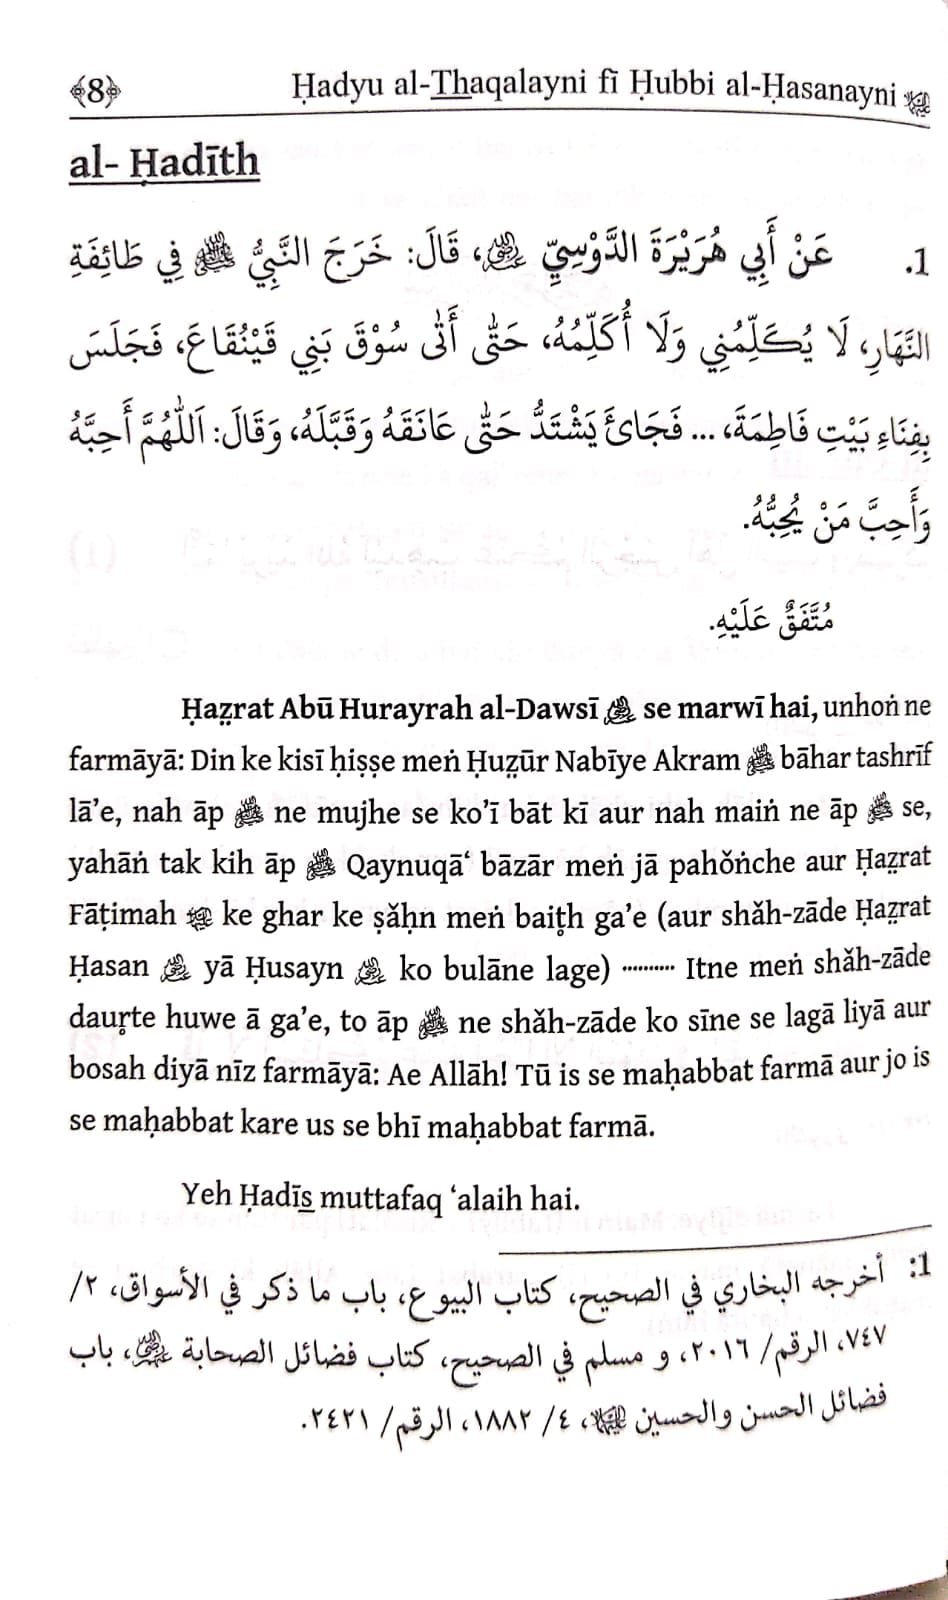 ﴾8﴿ Ḥadyu al-Thaqalayni fī Ḥubbi al-Ḥasanayni
al- Ḥadīth
1. عَنْ أَبِي هُرَيْرَةَ الدَّوْسِيِّ رضي الله عنه، قَالَ: خَرَجَ النَّبِيُّ ﷺ فِي طَائِفَةِ
النَّهَارِ، لَا يُكَلِّمُنِي وَلَا أُكَلِّمُهُ، حَتَّى أَتَى سُوْقَ بَنِي قَيْنُقَاعَ، فَجَلَسَ
بِفِنَاءِ بَيْتِ فَاطِمَةَ، ... فَجَائَ يَشْتَدُّ حَتَّى عَانَقَهُ وَقَبَّلَهُ، وَقَالَ: اَللّٰهُمَّ أَحِبَّهُ
وَأَحِبَّ مَنْ يُحِبُّهُ.
مُتَّفَقٌ عَلَيْهِ.
Ḥaz̤rat Abū Hurayrah al-Dawsī رضي الله عنه se marwī hai, unhoṅ ne
farmāyā: Din ke kisī ḥiṣṣe meṅ Ḥuz̤ūr Nabīye Akram ﷺ bāhar tashrīf
lā’e, nah āp ﷺ ne mujhe se ko’ī bāt kī aur nah maiṅ ne āp ﷺ se,
yahāṅ tak kih āp ﷺ Qaynuqā‘ bāzār meṅ jā pahŏṅche aur Ḥaz̤rat
Fāṭimah ke ghar ke ṣăḥn meṅ baiṭh ga’e (aur shăh-zāde Ḥaz̤rat
Ḥasan yā Ḥusayn ko bulāne lage) ·········· Itne meṅ shăh-zāde
dauṛte huwe ā ga’e, to āp ﷺ ne shăh-zāde ko sīne se lagā liyā aur
bosah diyā nīz farmāyā: Ae Allāh! Tū is se maḥabbat farmā aur jo is
se maḥabbat kare us se bhī maḥabbat farmā.
Yeh Ḥadīs̲ muttafaq ‘alaih hai.
1: أخرجه البخاري في الصحيح، كتاب البيوع، باب ما ذكر في الأسواق، ٢/
٧٤٧، الرقم/ ٢٠١٦، و مسلم في الصحيح، كتاب فضائل الصحابة، باب
فضائل الحسن والحسين، ٤/ ١٨٨٢، الرقم/ ٢٤٢١.